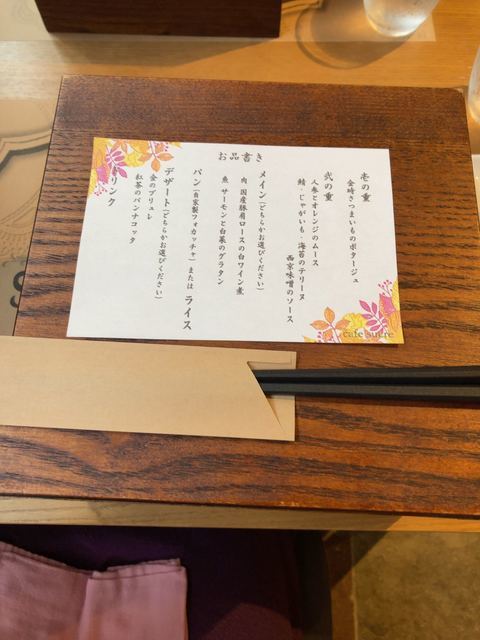 お品書き
壱の重
金時さつまいものポタージュ
弐の重
人参とオレンジのムース
鯖・じゃがいも・海苔のテリーヌ
西京味噌のソース
メイン(どちらかお選びください)
肉 国産豚肩ロースの白ワイン煮
魚 サーモンと白菜のグラタン
パン(自家製フォカッチャ) または ライス
デザート(どちらかお選びください)
金のブリュレ
紅茶のパンナコッタ
ドリンク
cafe sucre